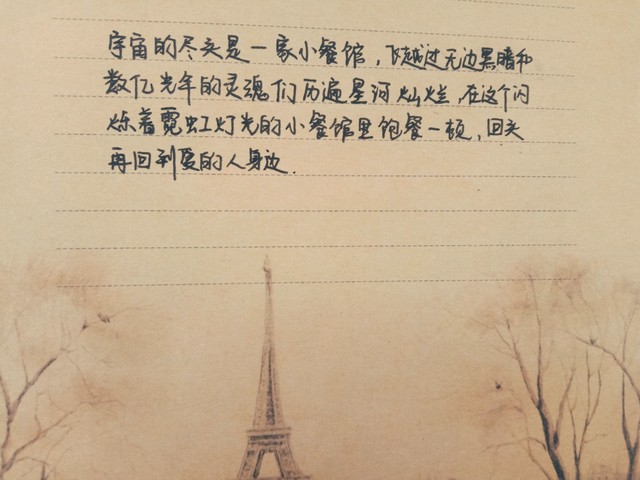 宇宙的尽头是一家小餐馆，飞越过无边黑暗和
数亿光年的灵魂们历遍星河灿烂，在这个闪
烁着霓虹灯光的小餐馆里饱餐一顿，回头
再回到爱的人身边.